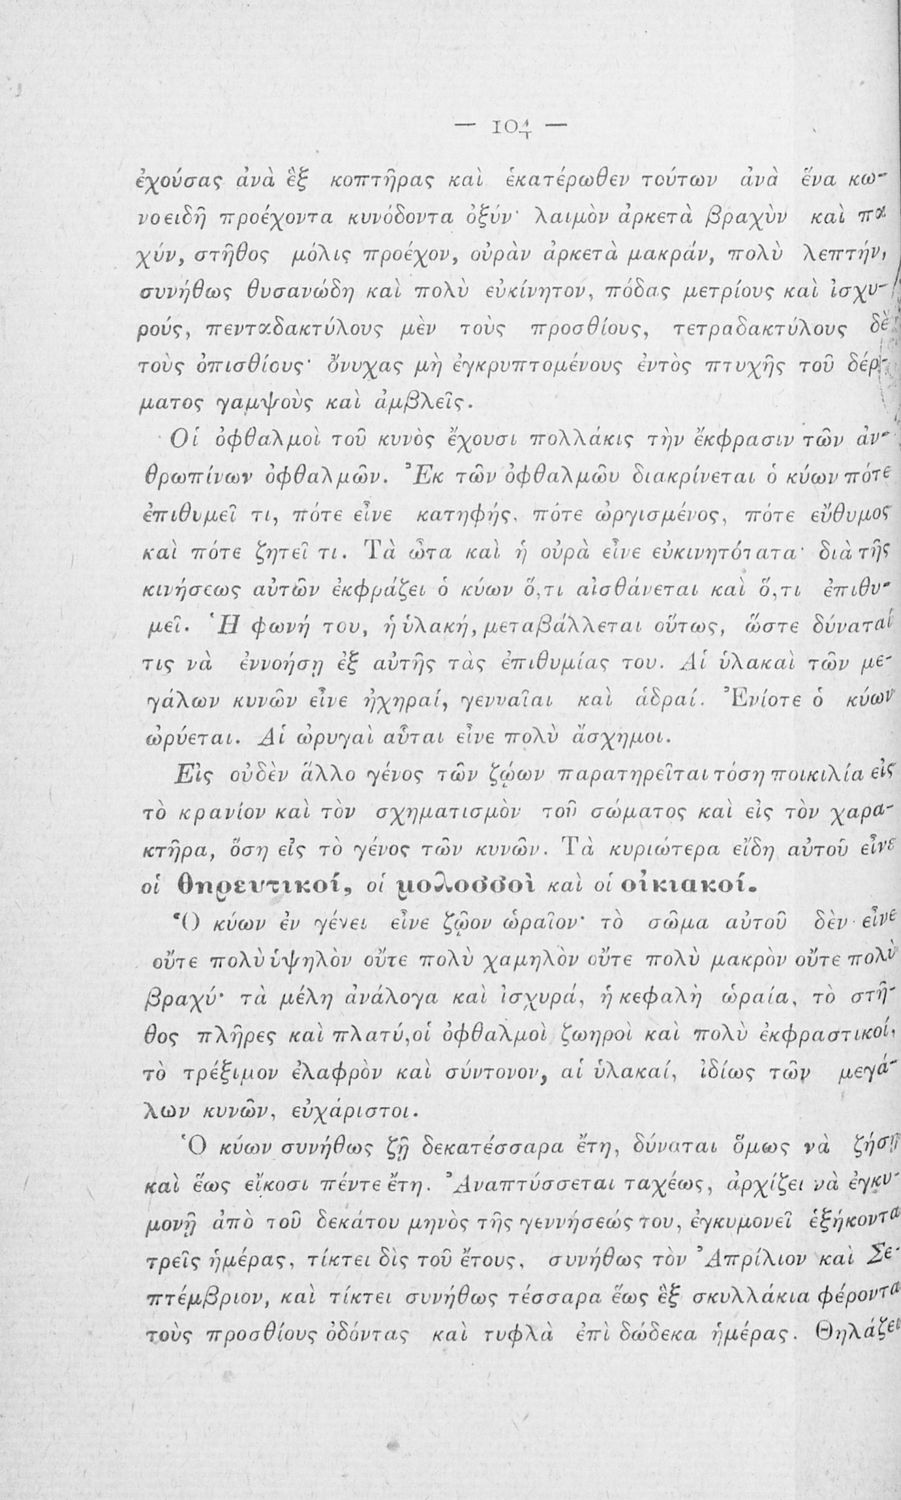 — 104 —
ἐχούσας ἀνὰ ἓξ κοπτῆρας καὶ ἑκατέρωθεν τούτων ἀνὰ ἕνα κω-
νοειδῆ προέχοντα κυνόδοντα ὀξύν· λαιμὸν ἀρκετὰ βραχὺν καὶ πα
χύν, στῆθος μόλις προέχον, οὐρὰν ἀρκετὰ μακράν, πολὺ λεπτήν,
συνήθως θυσανώδη καὶ πολὺ εὐκίνητον, πόδας μετρίους καὶ ἰσχυ-
ρούς, πενταδακτύλους μὲν τοὺς προσθίους, τετραδακτύλους δὲ
τοὺς ὀπισθίους· ὄνυχας μὴ ἐγκρυπτομένους ἐντὸς πτυχῆς τοῦ δέρ-
ματος γαμψοὺς καὶ ἀμβλεῖς.
Οἱ ὀφθαλμοὶ τοῦ κυνὸς ἔχουσι πολλάκις τὴν ἔκφρασιν τῶν ἀν-
θρωπίνων ὀφθαλμῶν. Ἐκ τῶν ὀφθαλμῶν διακρίνεται ὁ κύων πότε
ἐπιθυμεῖ τι, πότε εἶνε κατηφής, πότε ὠργισμένος, πότε εὔθυμος
καὶ πότε ζητεῖ τι. Τὰ ὦτα καὶ ἡ οὐρὰ εἶνε εὐκινητότατα· διὰ τῆς
κινήσεως αὐτῶν ἐκφράζει ὁ κύων ὅ,τι αἰσθάνεται καὶ ὅ,τι ἐπιθυ-
μεῖ. Ἡ φωνή του, ἡ ὑλακή, μεταβάλλεται οὕτως, ὥστε δύναταί
τις νὰ ἐννοήσῃ ἐξ αὐτῆς τὰς ἐπιθυμίας του. Αἱ ὑλακαὶ τῶν με-
γάλων κυνῶν εἶνε ἠχηραί, γενναῖαι καὶ ἁδραί. Ἐνίοτε ὁ κύων
ὠρύεται. Αἱ ὠρυγαὶ αὗται εἶνε πολὺ ἄσχημοι.
Εἰς οὐδὲν ἄλλο γένος τῶν ζῴων παρατηρεῖται τόση ποικιλία εἰς
τὸ κρανίον καὶ τὸν σχηματισμὸν τοῦ σώματος καὶ εἰς τὸν χαρα-
κτῆρα, ὅση εἰς τὸ γένος τῶν κυνῶν. Τὰ κυριώτερα εἴδη αὐτοῦ εἶνε
οἱ θηρευτικοί, οἱ μολοσσοὶ καὶ οἱ οἰκιακοί.
Ὁ κύων ἐν γένει εἶνε ζῷον ὡραῖον· τὸ σῶμα αὐτοῦ δὲν εἶνε
οὔτε πολὺ ὑψηλὸν οὔτε πολὺ χαμηλὸν οὔτε πολὺ μακρὸν οὔτε πολὺ
βραχύ· τὰ μέλη ἀνάλογα καὶ ἰσχυρά, ἡ κεφαλὴ ὡραία, τὸ στῆ-
θος πλῆρες καὶ πλατύ, οἱ ὀφθαλμοὶ ζωηροὶ καὶ πολὺ ἐκφραστικοί,
τὸ τρέξιμον ἐλαφρὸν καὶ σύντονον, αἱ ὑλακαί, ἰδίως τῶν μεγά-
λων κυνῶν, εὐχάριστοι.
Ὁ κύων συνήθως ζῇ δεκατέσσαρα ἔτη, δύναται ὅμως νὰ ζήσῃ
καὶ ἕως εἴκοσι πέντε ἔτη. Ἀναπτύσσεται ταχέως, ἀρχίζει νὰ ἐγκυ-
μονῇ ἀπὸ τοῦ δεκάτου μηνὸς τῆς γεννήσεώς του, ἐγκυμονεῖ ἑξήκοντα
τρεῖς ἡμέρας, τίκτει δὶς τοῦ ἔτους, συνήθως τὸν Ἀπρίλιον καὶ Σε-
πτέμβριον, καὶ τίκτει συνήθως τέσσαρα ἕως ἓξ σκυλλάκια φέροντα
τοὺς προσθίους ὀδόντας καὶ τυφλὰ ἐπὶ δώδεκα ἡμέρας. Θηλάζει